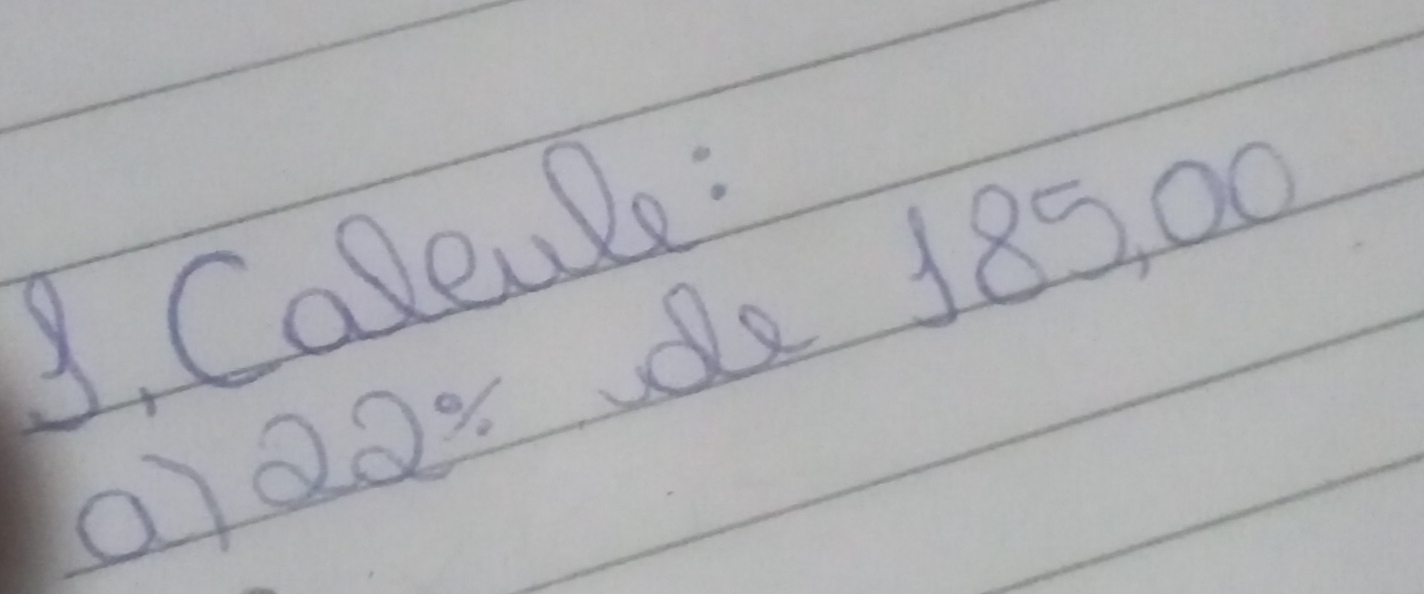 1. Calcule:
a) 22% de 185,00